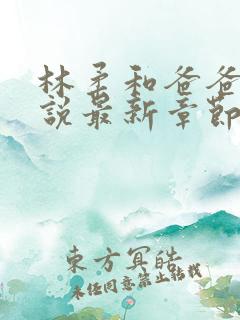 林柔和爸爸
說最新章節
東方冥皓
未经同意禁止转载